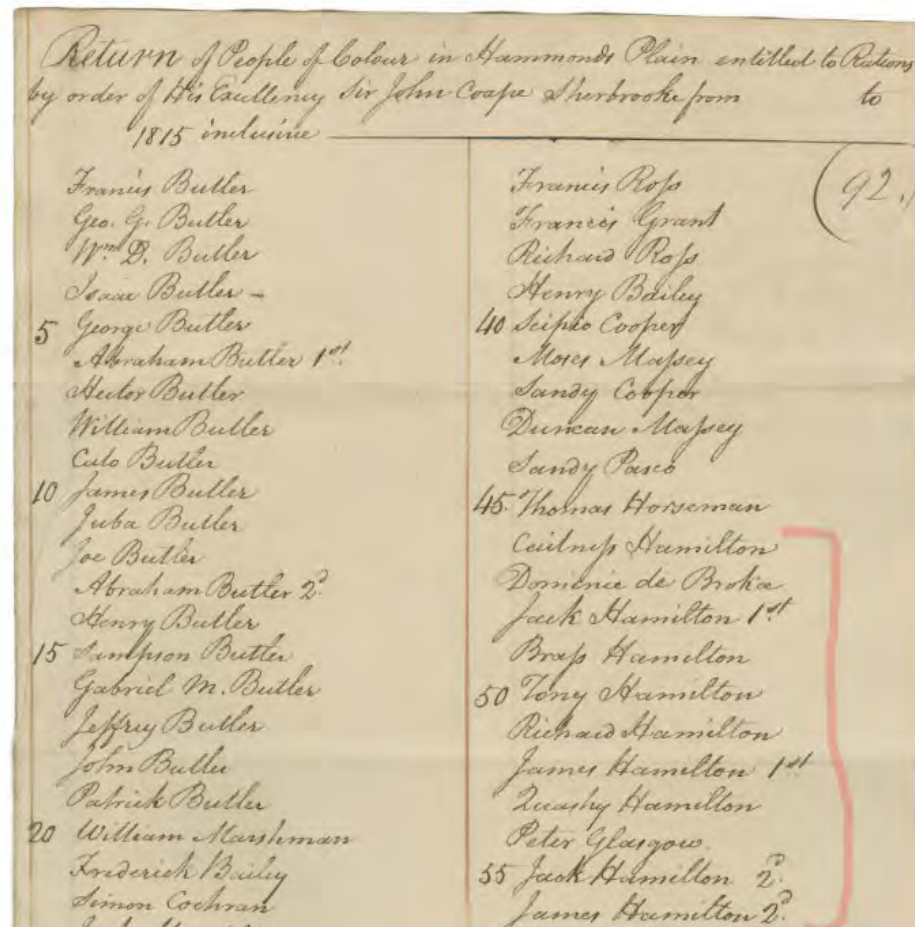 Return of People of Colour in Hammonds Plain entitled to Rations
by order of His Excellency Sir John Coape Sherbrooke from to
1815 inclusive
(92.)
Francis Butler
Geo. G. Butler
Wm. D. Butler
Isaac Butler -
5 George Butler
Abraham Butler 1st.
Hector Butler
William Butler
Cato Butler
10 James Butler
Juba Butler
Joe Butler
Abraham Butler 2d.
Henry Butler
15 Sampson Butler
Gabriel M. Butler
Jeffrey Butler
John Butler
Patrick Butler
20 William Marshman
Frederick Bailey
Simon Cochran
Francis Ross
Francis Grant
Richard Ross
Henry Bailey
40 Scipio Cooper
Moses Massey
Sandy Cooper
Duncan Massey
Sandy Pasco
45. Thomas Horseman
Caitness Hamilton
Domienic de Broka
Jack Hamilton 1st.
Brass Hamilton
50 Tony Hamilton
Richard Hamilton
James Hamilton 1st
Quashy Hamilton
Peter Glasgow.
55 Jack Hamilton 2d.
James Hamilton 2d.